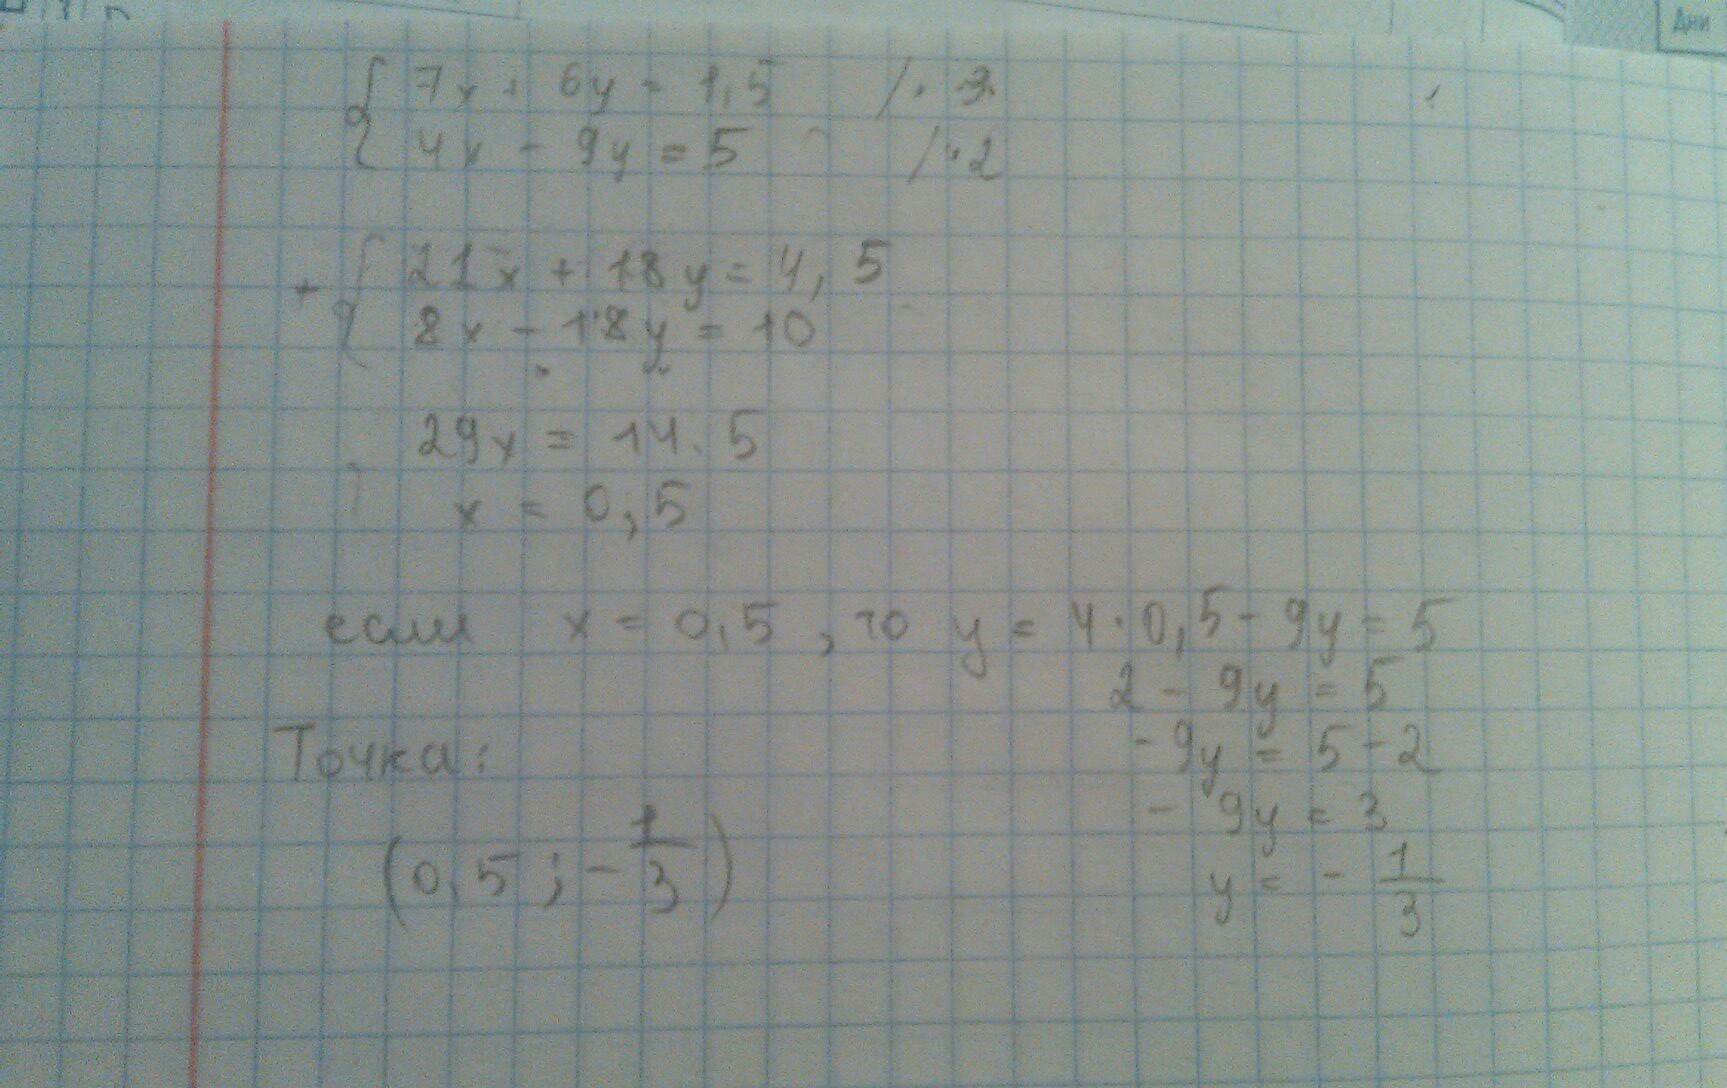 { 7x + 6y = 1,5 / · 3
4x - 9y = 5 / · 2
+ { 21x + 18y = 4,5
8x - 18y = 10
29x = 14.5
x = 0,5
если x = 0,5, то y = 4·0,5 - 9y = 5
2 - 9y = 5
- 9y = 5 - 2
- 9y = 3
y = - 1/3
Точка:
(0,5 ; - 1/3)
Дни